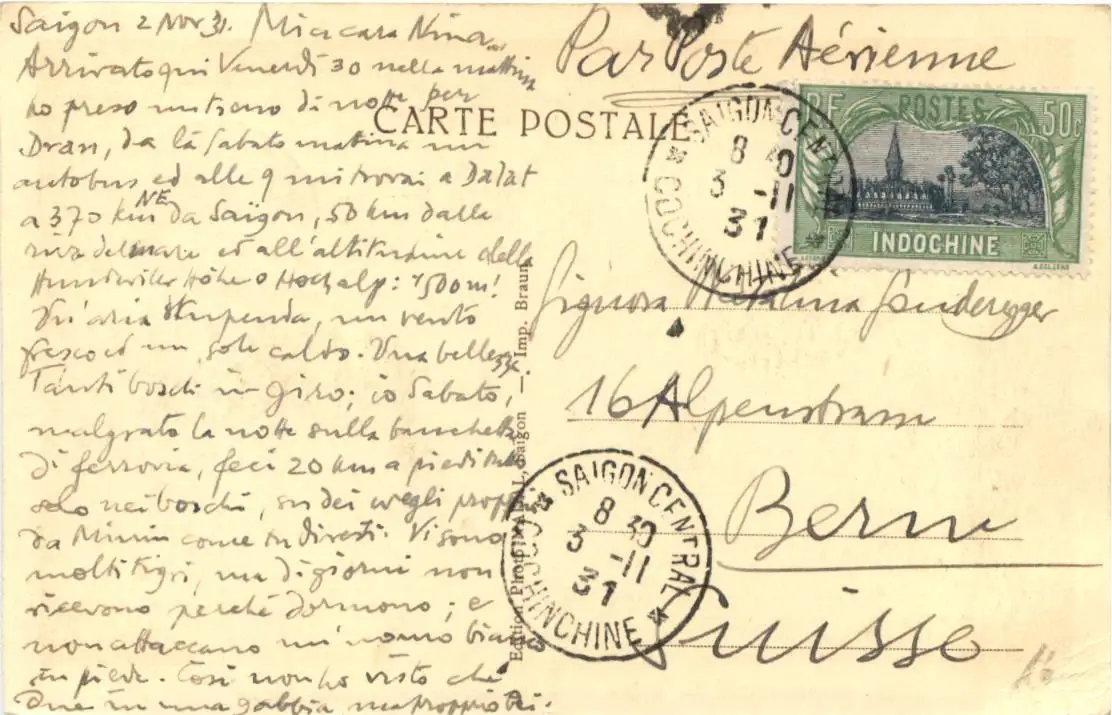 Saigon 2 Nov 31. Mia cara Nina
Arrivato qui Venerdì 30 nella mattina
ho preso un treno di notte per
Dran, da là Sabato mattina un
autobus ed alle 9 mi trovai a Dalat
a 370 km NE da Saigon, 50 km dalla
riva del mare ed all'altitudine della
Hundwiler Höhe o Hochalp: 1500m!
Un'aria stupenda, un vento
fresco ed un sole caldo. Una bellezza
Tanti boschi in giro; io Sabato,
malgrato la notte sulla banchetta
di ferrovia, feci 20 km a piedi
solo nei boschi, su dei
da come tu diresti. Vi sono
molti tigri, ma di giorni non
perché dormono; e
non attaccano un uomo bianco
in piedi. Così non ho visto che
due in una gabbia
Par Poste Aérienne
CARTE POSTALE
RF POSTES 50c
INDOCHINE
SAIGON-CENTRAL
8 30
3 -11
31
COCHINCHINE
Signora Sonderegger
16 Alpenstrasse
Bern
Suisse
SAIGON CENTRAL
8 30
3 -11
31
COCHINCHINE
Edition Photo NADAL, Saigon — Imp. Braun